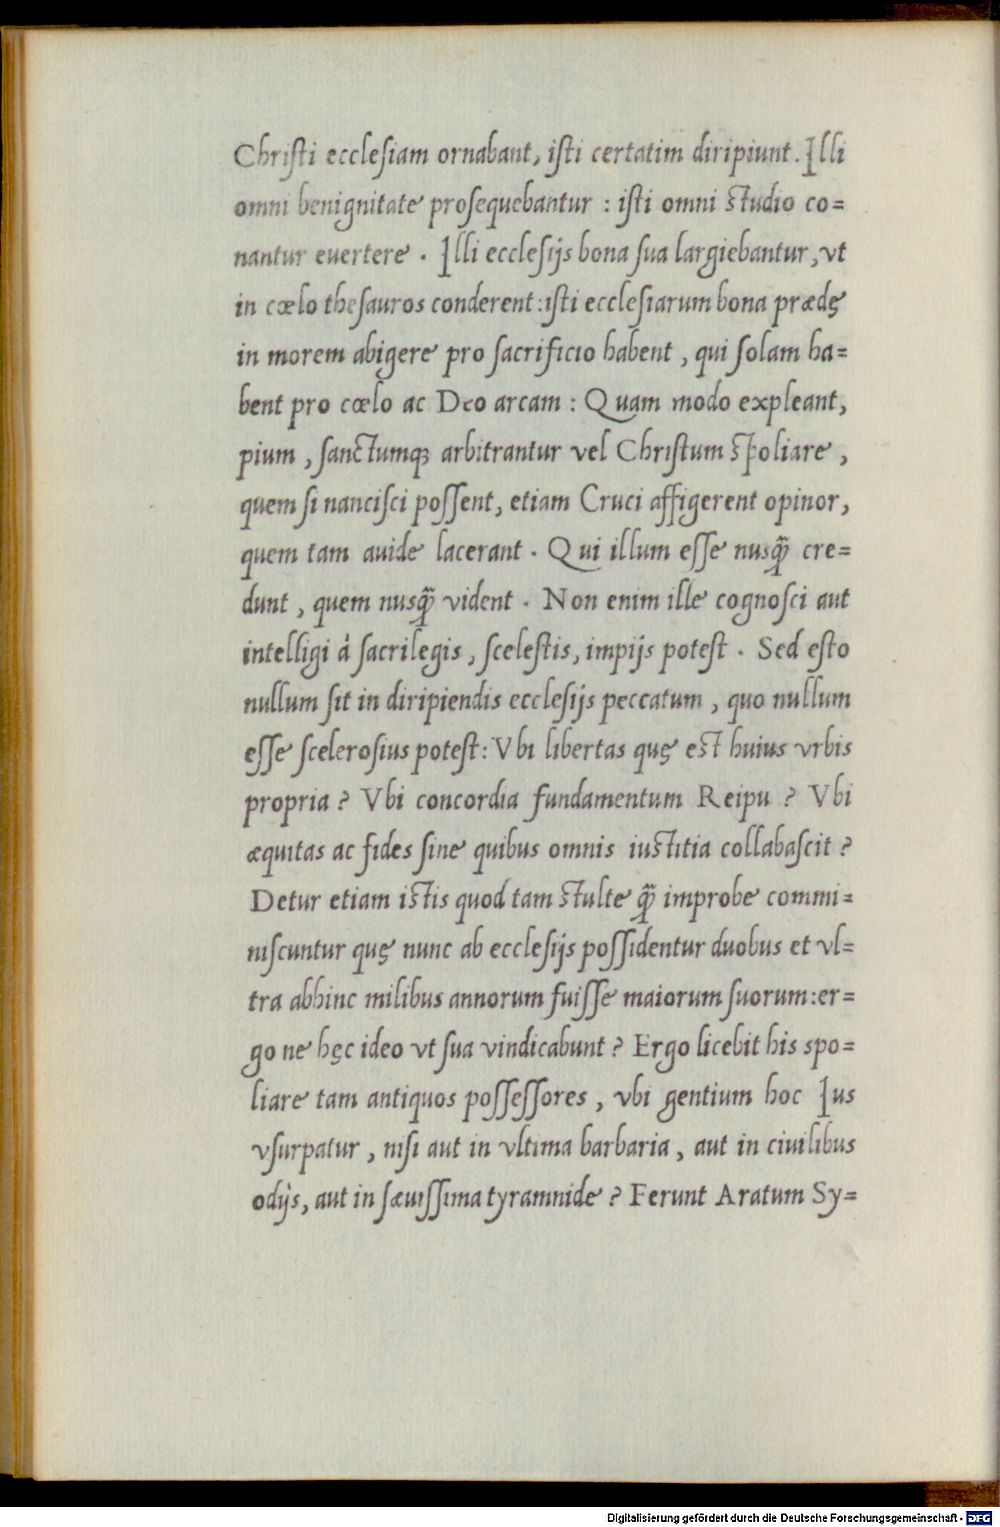 Christi ecclesiam ornabant, isti certatim diripiunt. Illi
omni benignitate prosequebantur : isti omni studio co=
nantur euertere . Illi ecclesijs bona sua largiebantur, vt
in cœlo thesauros conderent: isti ecclesiarum bona prædę
in morem abigere pro sacrificio habent , qui solam ha=
bent pro cœlo ac Deo arcam : Quam modo expleant,
pium , sanctumqꝫ arbitrantur vel Christum spoliare ,
quem si nancisci possent, etiam Cruci affigerent opinor,
quem tam auide lacerant . Qui illum esse nusq̃ cre=
dunt , quem nusq̃ vident . Non enim ille cognosci aut
intelligi à sacrilegis , scelestis, impijs potest . Sed esto
nullum sit in diripiendis ecclesijs peccatum , quo nullum
esse scelerosius potest: Vbi libertas quę est huius vrbis
propria ? Vbi concordia fundamentum Reipu ? Vbi
æquitas ac fides sine quibus omnis iustitia collabascit ?
Detur etiam istis quod tam stulte q̃ improbe commi=
niscuntur quę nunc ab ecclesijs possidentur duobus et vl=
tra abhinc milibus annorum fuisse maiorum suorum: er=
go ne hęc ideo vt sua vindicabunt ? Ergo licebit his spo=
liare tam antiquos possessores , vbi gentium hoc Ius
vsurpatur , nisi aut in vltima barbaria , aut in ciuilibus
odijs, aut in sæuissima tyramnide ? Ferunt Aratum Sy=
Digitalisierung gefördert durch die Deutsche Forschungsgemeinschaft - DFG